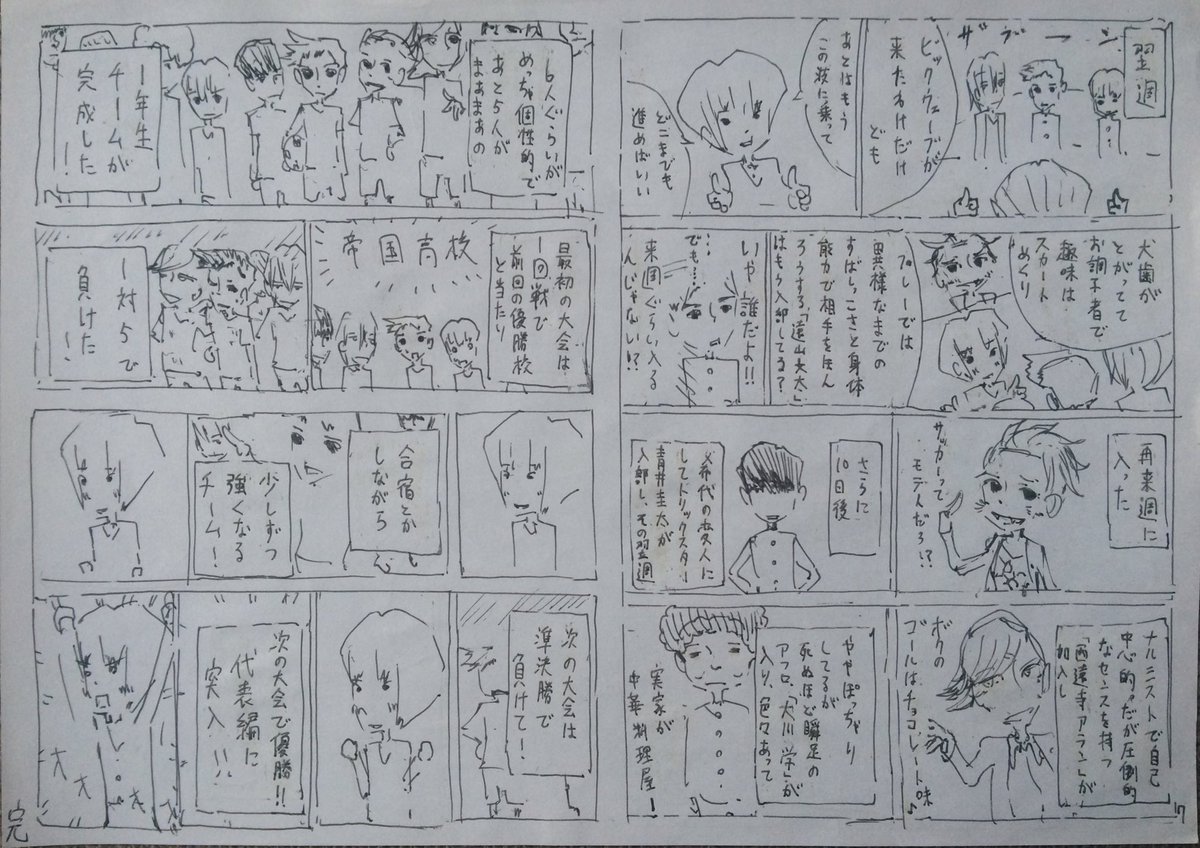 翌週
ザブーーン
ビックウェーブが
来たわけだけ
ども
あとはもう
この波に乗って
どこまでも
進めばいい
犬歯が
とがってて
お調子者で
趣味は
スカート
めくり
プレーでは
異様なまでの
すばしっこさと身体
能力で相手をほん
ろうする「遠山大太」
はもう入部してる?
いや誰だよ!!
でも…
来週ぐらい入る
んじゃない!?
再来週に
入った
サッカーって
モテんだろ!?
さらに
10日後
希代の変人に
してトリックスター
青井圭太が
入部し、その翌週
ナルシストで自己
中心的。だが圧倒的
なセンスを持つ
「西遠寺アラン」が
加入し
ボクの
ゴールはチョコレート味♪
ややぽっちゃり
してるが
死ぬほど瞬足の
アフロ、「大川学」が
入り、色々あって
実家が
中華料理屋!
17
6人ぐらいが
めっちゃ個性的で
あと5人が
まあまあの
1年生
チームが
完成した!
最初の大会は
1回戦で
前回の優勝校
と当たり
帝国高校
1対5で
負けた!
合宿とか
しながら
少しずつ
強くなる
チーム!
次の大会は
準決勝で
負けて!
次の大会で優勝!!
代表編に
突入!!
オ
オ
完